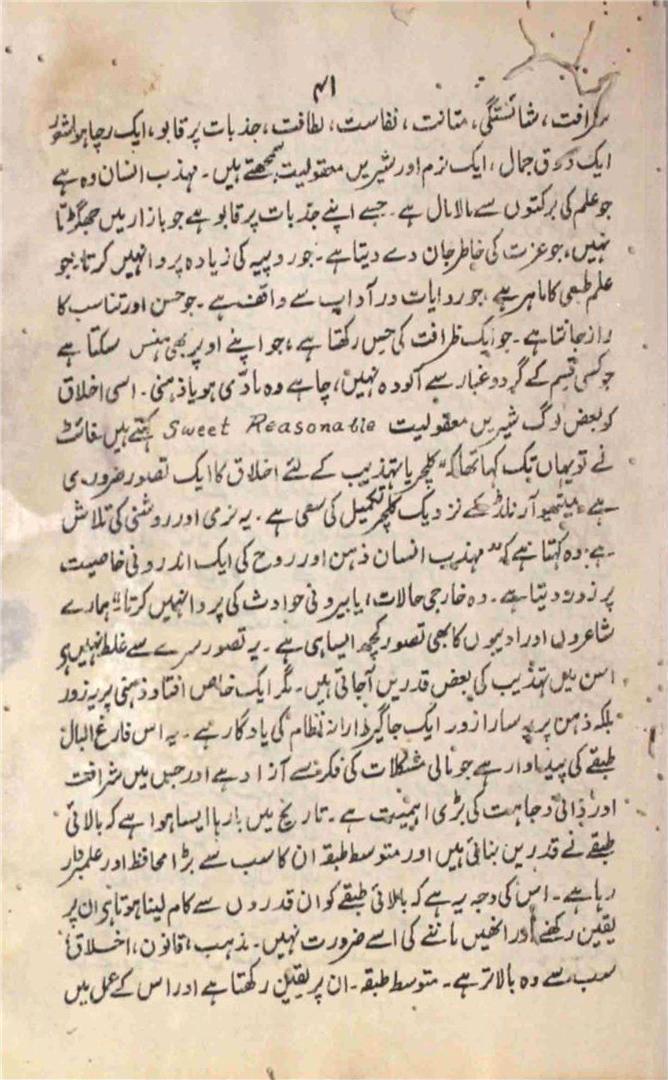 ۴۱
شرافت، شائستگی، متانت، نفاست، لطافت، جذبات پر قابو، ایک رچا ہوا شعور
ایک ذوق جمال، ایک نرم اور شیریں معقولیت سمجھتے ہیں۔ مہذب انسان وہ ہے
جو علم کی برکتوں سے مالا مال ہے۔ جسے اپنے جذبات پر قابو ہے جو بازار میں جھگڑتا
نہیں، جو عزت کی خاطر جان دے دیتا ہے۔ جو روپیہ کی زیادہ پروا نہیں کرتا۔ جو
علم طبعی کا ماہر ہے، جو روایات در آداب سے واقف ہے۔ جو حسن اور تناسب کا
راز جانتا ہے۔ جو ایک ظرافت کی حِس رکھتا ہے، جو اپنے اوپر بھی ہنس سکتا ہے
جو کسی قسم کے گرد و غبار سے آلودہ نہیں، چاہے وہ مادّی ہو یا ذہنی۔ اسی اخلاق
کو بعض لوگ شیریں معقولیت Sweet Reasonable کہتے ہیں۔ فائٹ
نے تو یہاں تک کہا تھا کہ "کلچر یا تہذیب کے لئے اخلاق کا ایک تصور ضروری
ہے" میتھیو آرنلڈ کے نزدیک کلچر تکمیل کی سعی ہے۔ یہ نرمی اور روشنی کی تلاش
ہے۔ وہ کہتا ہے کہ "مہذب انسان ذہن اور روح کی ایک اندرونی خاصیت
پر زور دیتا ہے۔ وہ خارجی حالات، یا بیرونی حوادث کی پروا نہیں کرتا" ہمارے
شاعروں اور ادیبوں کا بھی تصور کچھ ایسا ہی ہے۔ یہ تصور سرے سے غلط نہیں ہو
اس میں تہذیب کی بعض قدریں آ جاتی ہیں۔ مگر ایک خاص افتاد ذہنی پر یہ زور
بلکہ ذہن پر یہ سارا زور ایک جاگیردارانہ نظام کی یادگار ہے۔ یہ اس فارغ البال
طبقے کی پیداوار ہے جو مالی مشکلات کی فکر سے آزاد ہے اور جس میں شرافت
اور ذاتی وجاہت کی بڑی اہمیت ہے۔ تاریخ میں بارہا ایسا ہوا ہے کہ بالائی
طبقے نے قدریں بنائی ہیں اور متوسط طبقہ ان کا سب سے بڑا محافظ اور علمبردار
رہا ہے۔ اس کی وجہ یہ ہے کہ بالائی طبقے کو ان قدروں سے کام لینا ہوتا ہے ان پر
یقین رکھنے اور انھیں ماننے کی اسے ضرورت نہیں۔ مذہب، قانون، اخلاق
سب سے وہ بالاتر ہے۔ متوسط طبقہ۔ ان پر یقین رکھتا ہے اور اس کے عمل میں